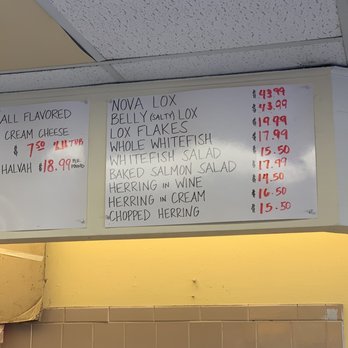 ALL FLAVORED
CREAM CHEESE
$ 7.50 TUB
HALVAH $18.99 PER POUND
NOVA LOX $43.99
BELLY (SALTY) LOX $43.99
LOX FLAKES $19.99
WHOLE WHITEFISH $17.99
WHITEFISH SALAD $15.50
BAKED SALMON SALAD $17.99
HERRING IN WINE $14.50
HERRING IN CREAM $16.50
CHOPPED HERRING $15.50